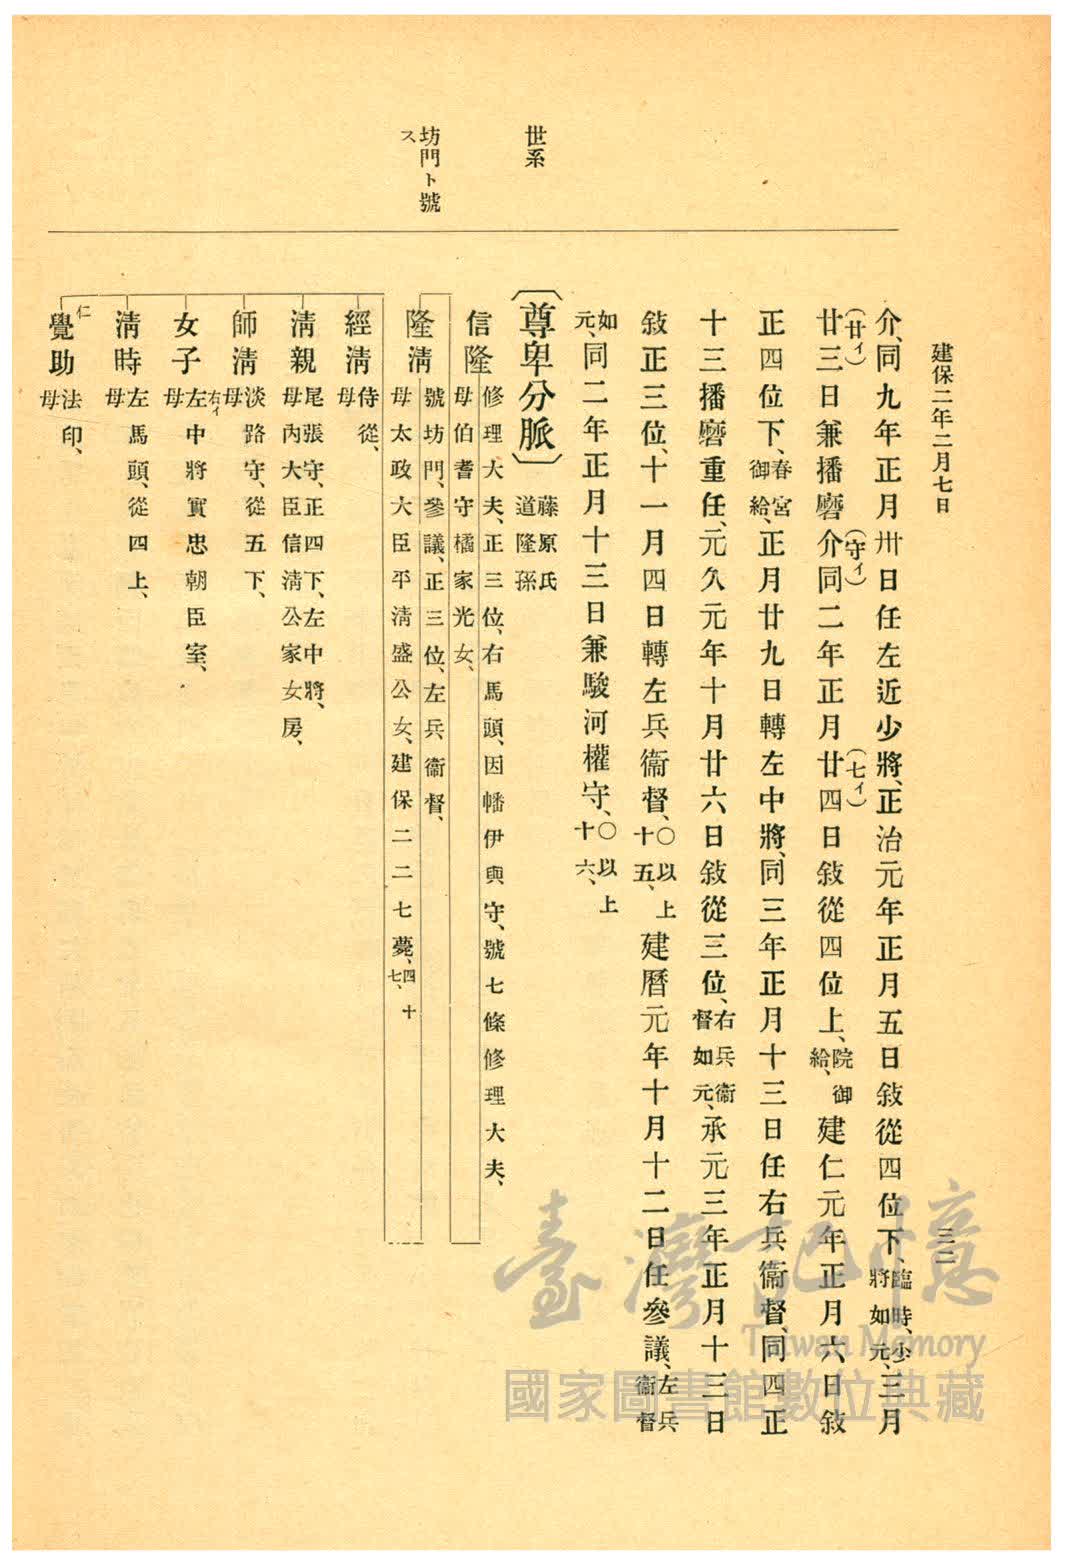 建保二年二月七日
三二
介、同九年正月卅日任左近少將、正治元年正月五日敍從四位下、臨時、少將如元、三月
廿三日兼播磨介同二年正月廿四日敍從四位上、院御給、建仁元年正月六日敍
(廿イ)
(守イ)
(七イ)
正四位下、春宮御給、正月廿九日轉左中將、同三年正月十三日任右兵衞督、同四正
十三播磨重任、元久元年十月廿六日敍從三位、右兵衞督如元、承元三年正月十三日
敍正三位、十一月四日轉左兵衞督、○以上十五、建曆元年十月十二日任參議、左兵衞督
如元、同二年正月十三日兼駿河權守、○以上十六、
世系
〔尊卑分脈〕藤原氏道隆孫
信隆
修理大夫、正三位、右馬頭、因幡伊與守、號七條修理大夫、
母伯耆守橘家光女、
坊門ト號ス
隆淸
號坊門、參議、正三位、左兵衞督、
母太政大臣平淸盛公女、建保二二七薨、四十七、
經淸
侍從、
母
淸親
尾張守、正四下、左中將、
母內大臣信淸公家女房、
師淸
淡路守、從五下、
母
女子
左中將實忠朝臣室、
右イ
母
淸時
左馬頭、從四上、
母
覺助
仁
法印、
母
臺灣記憶
Taiwan Memory
國家圖書館數位典藏